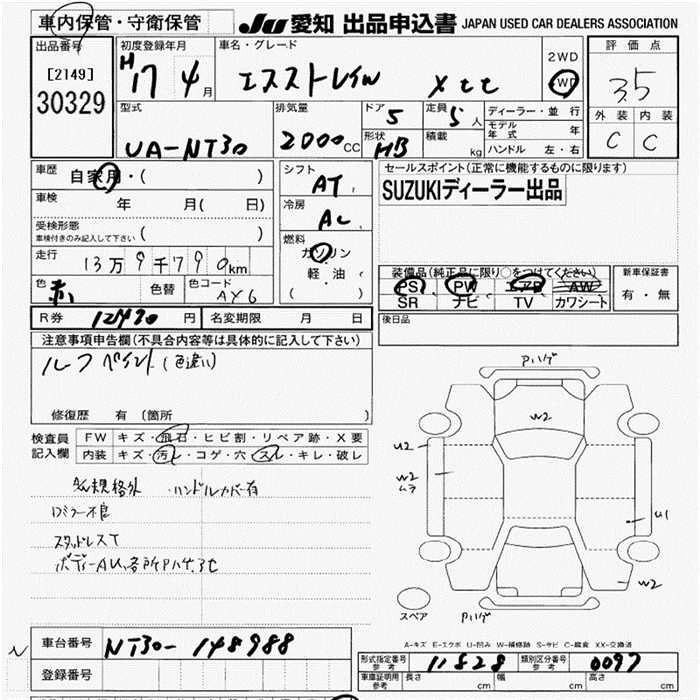 車内保管・守衛保管
JU 愛知 出品申込書 JAPAN USED CAR DEALERS ASSOCIATION
出品番号
[2149]
30329
初度登録年月
H17 4月
車名・グレード
エクストレイル Xtt
2WD
4WD
評価点
3.5
外装 内装
C C
型式
UA-NT30
排気量
2000cc
ドア 5
定員 5人
形状 HB
積載 kg
ディーラー・並行
モデル年式 年
ハンドル 左・右
車歴
自家用・( )
車検 年 月( 日)
受検形態
車検付きのみ記入して下さい ( )
走行
13万9千790km
色 赤 色替 色コード AY6
シフト
AT
冷房
AC
燃料
ガソリン
軽・油
( )
セールスポイント(正常に機能するものに限ります)
SUZUKIディーラー出品
装備品(純正品に限り○をつけてください)
PS PW エアB AW
SR ナビ TV カワシート
新車保証書
有・無
R券 12430 円 名変期限 月 日
後日品
注意事項申告欄(不具合内容等は具体的に記入して下さい)
ルーフペイント(色違い)
修復歴 有 (箇所 )
検査員
記入欄
FW キズ・飛石・ヒビ割・リペア跡・X要
内装 キズ・汚レ・コゲ・穴・スレ・キレ・破レ
規格外 ハンドルカバー有
ロミラー不良
スタッドレスT
ボディーAU、各所Pハゲ、
Pハゲ
W2
U2
W2
ムラ
U1
W2
スペア
Pハゲ
A-キズ E-エクボ U-凹み W-補修跡 S-サビ C-腐食 XX-交換済
車台番号 NT30-148988
登録番号
形式指定番号 参考 11828
類別区分番号 参考 0097
車庫証明用 参考 長さ cm 幅 cm 高さ cm